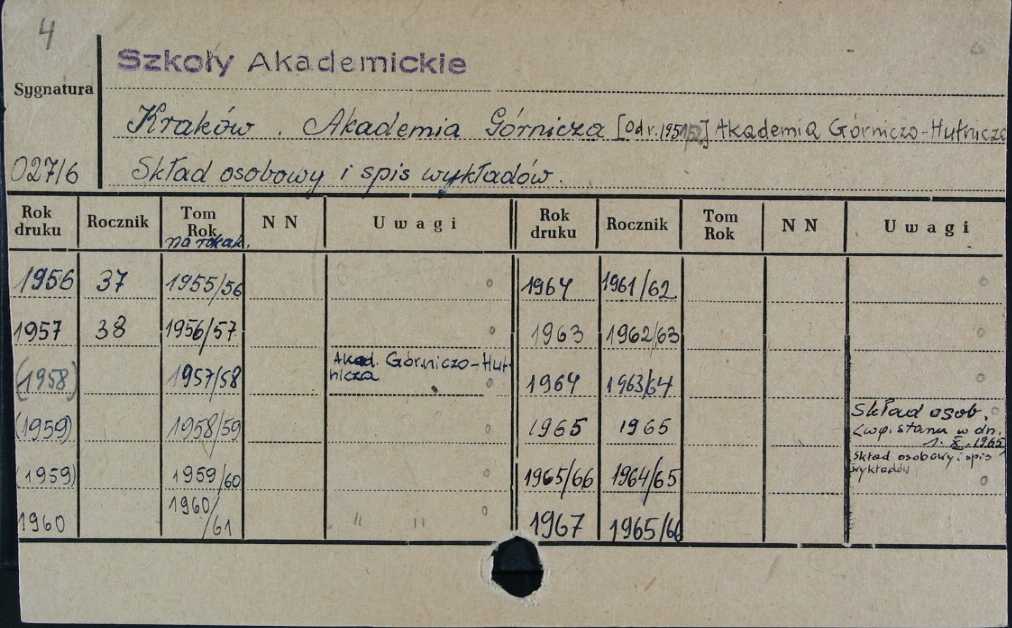 4
Szkoły Akademickie
Sygnatura
Kraków. Akademia Górnicza [Od r. 1951/52] Akademia Górniczo-Hutnicza
027/6 Skład osobowy i spis wykładów.
Rok druku Rocznik Tom Rok na rok ak. N N Uwagi Rok druku Rocznik Tom Rok N N Uwagi
1956 37 1955/56 1964 1961/62
1957 38 1956/57 1963 1962/63
(1958) 1957/58 Akad. Górniczo-Hutnicza 1964 1963/64
(1959) 1958/59 1965 1965 Skład osob.
(wg. stanu w dn.
1. X. 1965
(1959) 1959/60 1965/66 1964/65 Skład osobowy i spis
wykładów
1960 1960/61 " " 1967 1965/66